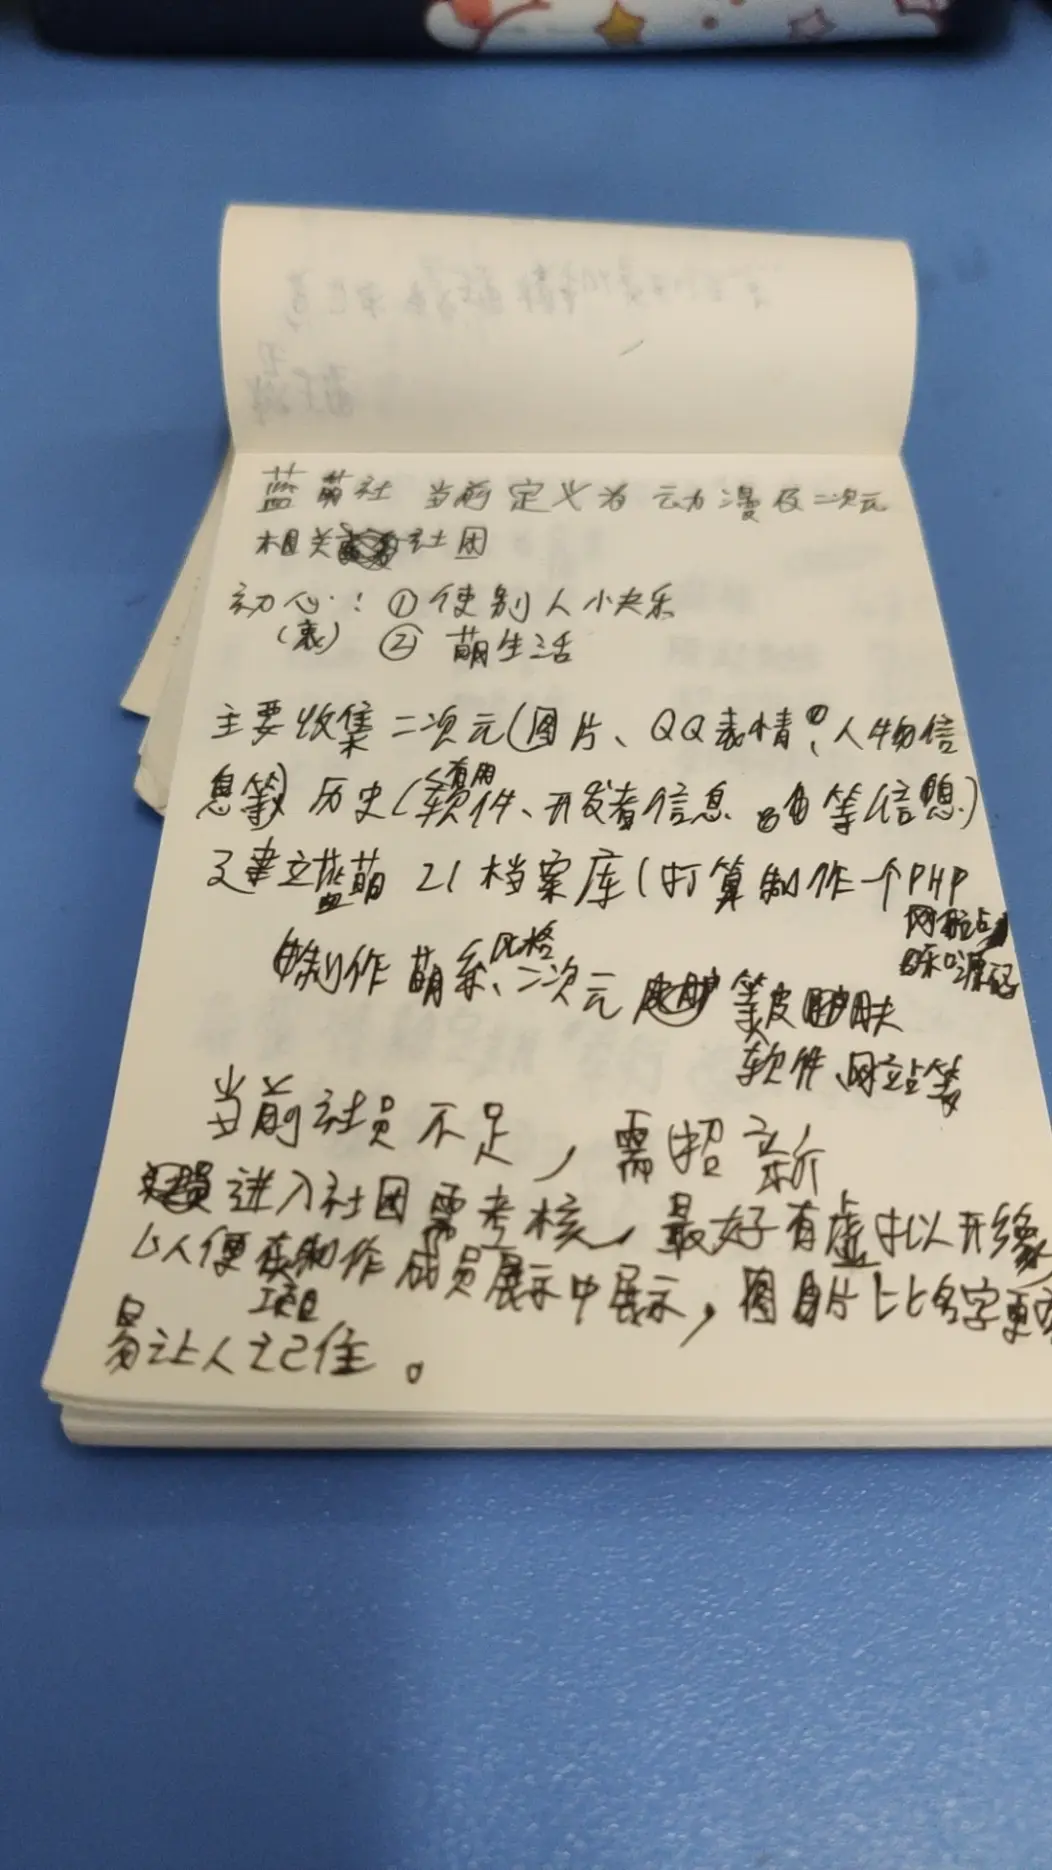 蓝萌社 当前定义为 动漫及二次元
相关社团
初心：①使别人小快乐
(表) ② 萌生活
主要收集二次元(图片、QQ表情、人物信
息等) 历史(软件、开发者信息 等信息)
有用
建立蓝萌 21 档案库(打算制作一个PHP
网站
源码
制作 萌系、二次元 等皮肤
风格
软件、网站等
当前社员不足，需招新
进入社团需考核，最好有虚拟形象
以便在制作成员展示中展示，图片比名字更
项目
易让人记住。